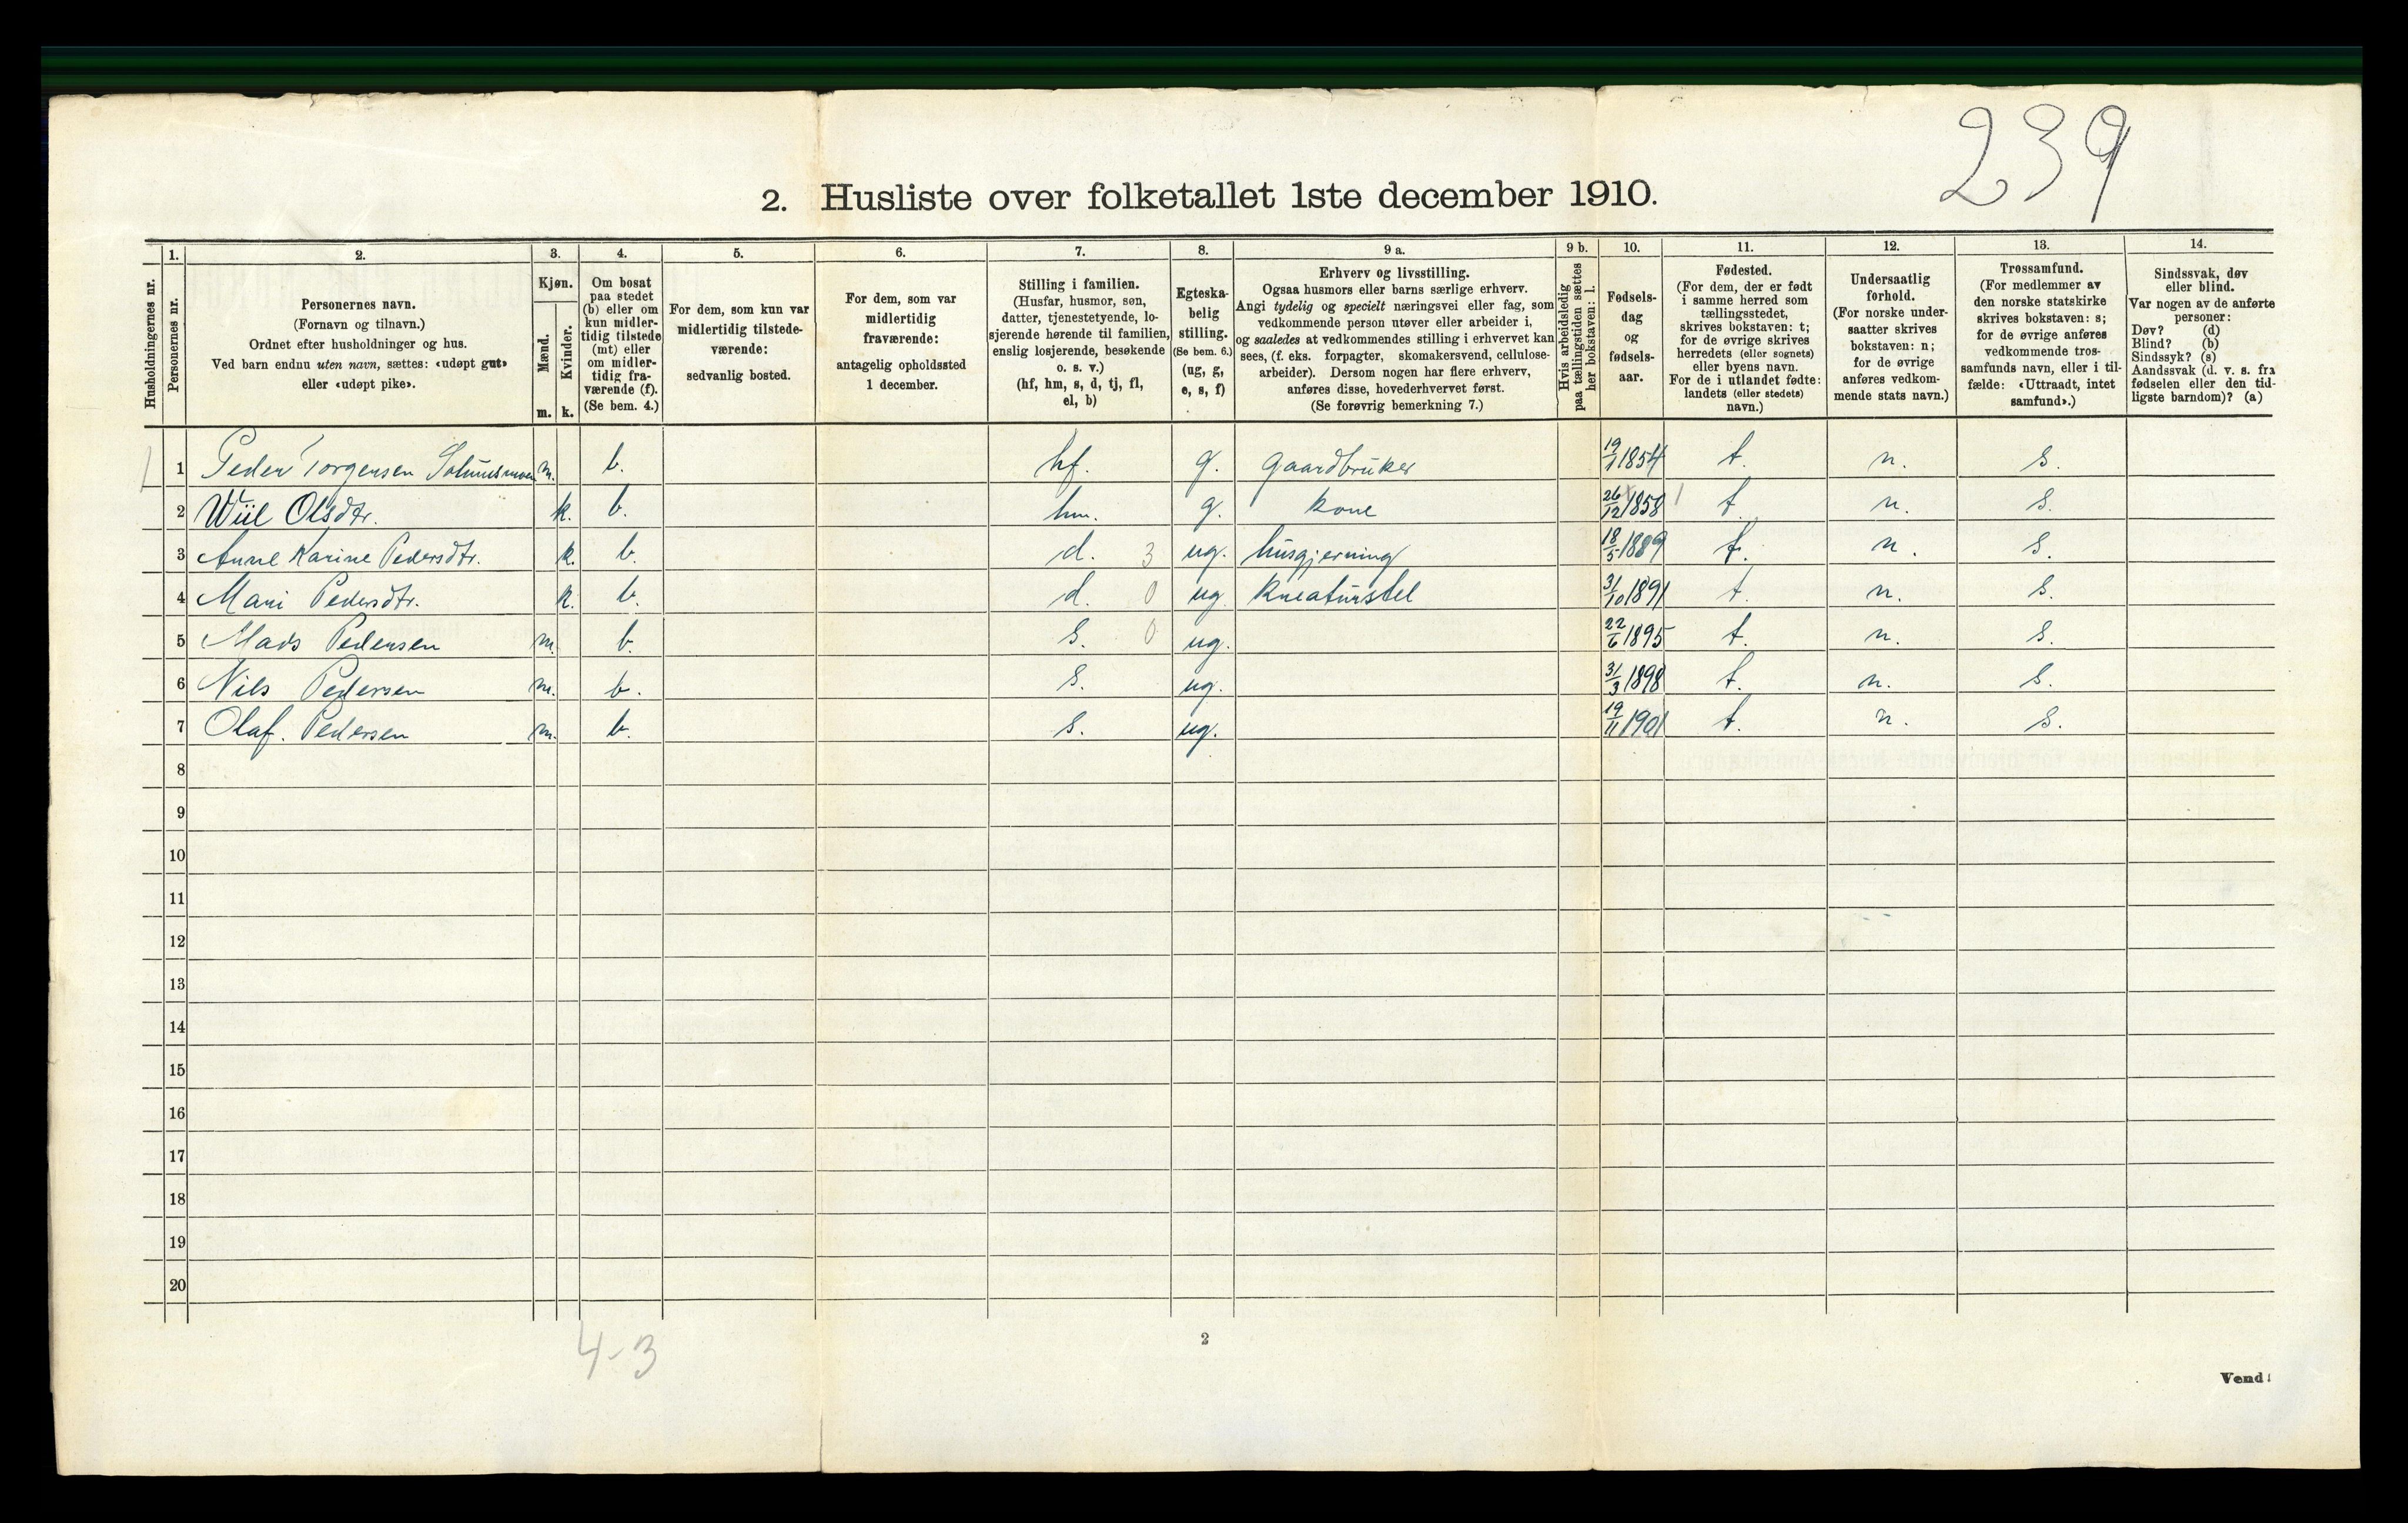 239
2. Husliste over folketallet 1ste december 1910.
Husholdningernes nr.
1. Personernes nr.
2. Personernes navn.
(Fornavn og tilnavn.)
Ordnet efter husholdninger og hus.
Ved barn endnu uten navn, sættes: «udøpt gut»
eller «udøpt pike».
3. Kjøn.
Mænd. m.
Kvinder. k.
4. Om bosat
paa stedet
(b) eller om
kun midler-
tidig tilstede
(mt) eller
om midler-
tidig fra-
værende (f).
(Se bem. 4.)
5. For dem, som kun var
midlertidig tilstede-
værende:
sedvanlig bosted.
6. For dem, som var
midlertidig
fraværende:
antagelig opholdssted
1 december.
7. Stilling i familien.
(Husfar, husmor, søn,
datter, tjenestetyende, lo-
sjerende hørende til familien,
enslig losjerende, besøkende
o. s. v.)
(hf, hm, s, d, tj, fl,
el, b)
8. Egteska-
belig
stilling.
(Se bem. 6.)
(ug, g,
e, s, f)
9 a. Erhverv og livsstilling.
Ogsaa husmors eller barns særlige erhverv.
Angi tydelig og specielt næringsvei eller fag, som
vedkommende person utøver eller arbeider i,
og saaledes at vedkommendes stilling i erhvervet kan
sees, (f. eks. forpagter, skomakersvend, cellulose-
arbeider). Dersom nogen har flere erhverv,
anføres disse, hovederhvervet først.
(Se forøvrig bemerkning 7.)
9 b. Hvis arbeidsledig
paa tællingstiden sættes
her bokstaven: l.
10. Fødsels-
dag
og
fødsels-
aar.
11. Fødested.
(For dem, der er født
i samme herred som
tællingsstedet,
skrives bokstaven: t;
for de øvrige skrives
herredets (eller sognets)
eller byens navn.
For de i utlandet fødte:
landets (eller stedets)
navn.)
12. Undersaatlig
forhold.
(For norske under-
saatter skrives
bokstaven: n;
for de øvrige
anføres vedkom-
mende stats navn.)
13. Trossamfund.
(For medlemmer av
den norske statskirke
skrives bokstaven: s;
for de øvrige anføres
vedkommende tros-
samfunds navn, eller i til-
fælde: «Uttraadt, intet
samfund».)
14. Sindssvak, døv
eller blind.
Var nogen av de anførte
personer:
Døv? (d)
Blind? (b)
Sindssyk? (s)
Aandssvak (d. v. s. fra
fødselen eller den tid-
ligste barndom)? (a)
1 1 Peder Torgersen m. b. hf. g. gaardbruker 19/1 1854 t. n. s.
2 Wiil Olsdtr. k. b. hm. g. kone 26/12 1858 1 t. n. s.
3 Anne Karine Pedersdtr. k. b. d. 3 ug. husgjerning 18/5 1889 t. n. s.
4 Mari Pedersdtr. k. b. d. 0 ug. kreaturstel 31/10 1891 t. n. s.
5 Mads Pedersen m. b. s. 0 ug. 22/6 1895 t. n. s.
6 Nils Pedersen m. b. s. ug. 31/3 1898 t. n. s.
7 Olaf. Pedersen m. b. s. ug. 19/11 1901 t. n. s.
8
9
10
11
12
13
14
15
16
17
18
19
20
4-3
2
Vend!